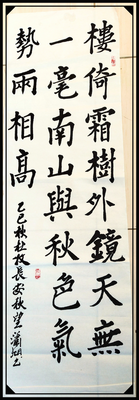 樓倚霜樹外鏡天無
一毫南山與秋色氣
勢兩相高
乙巳秋杜牧長安秋望